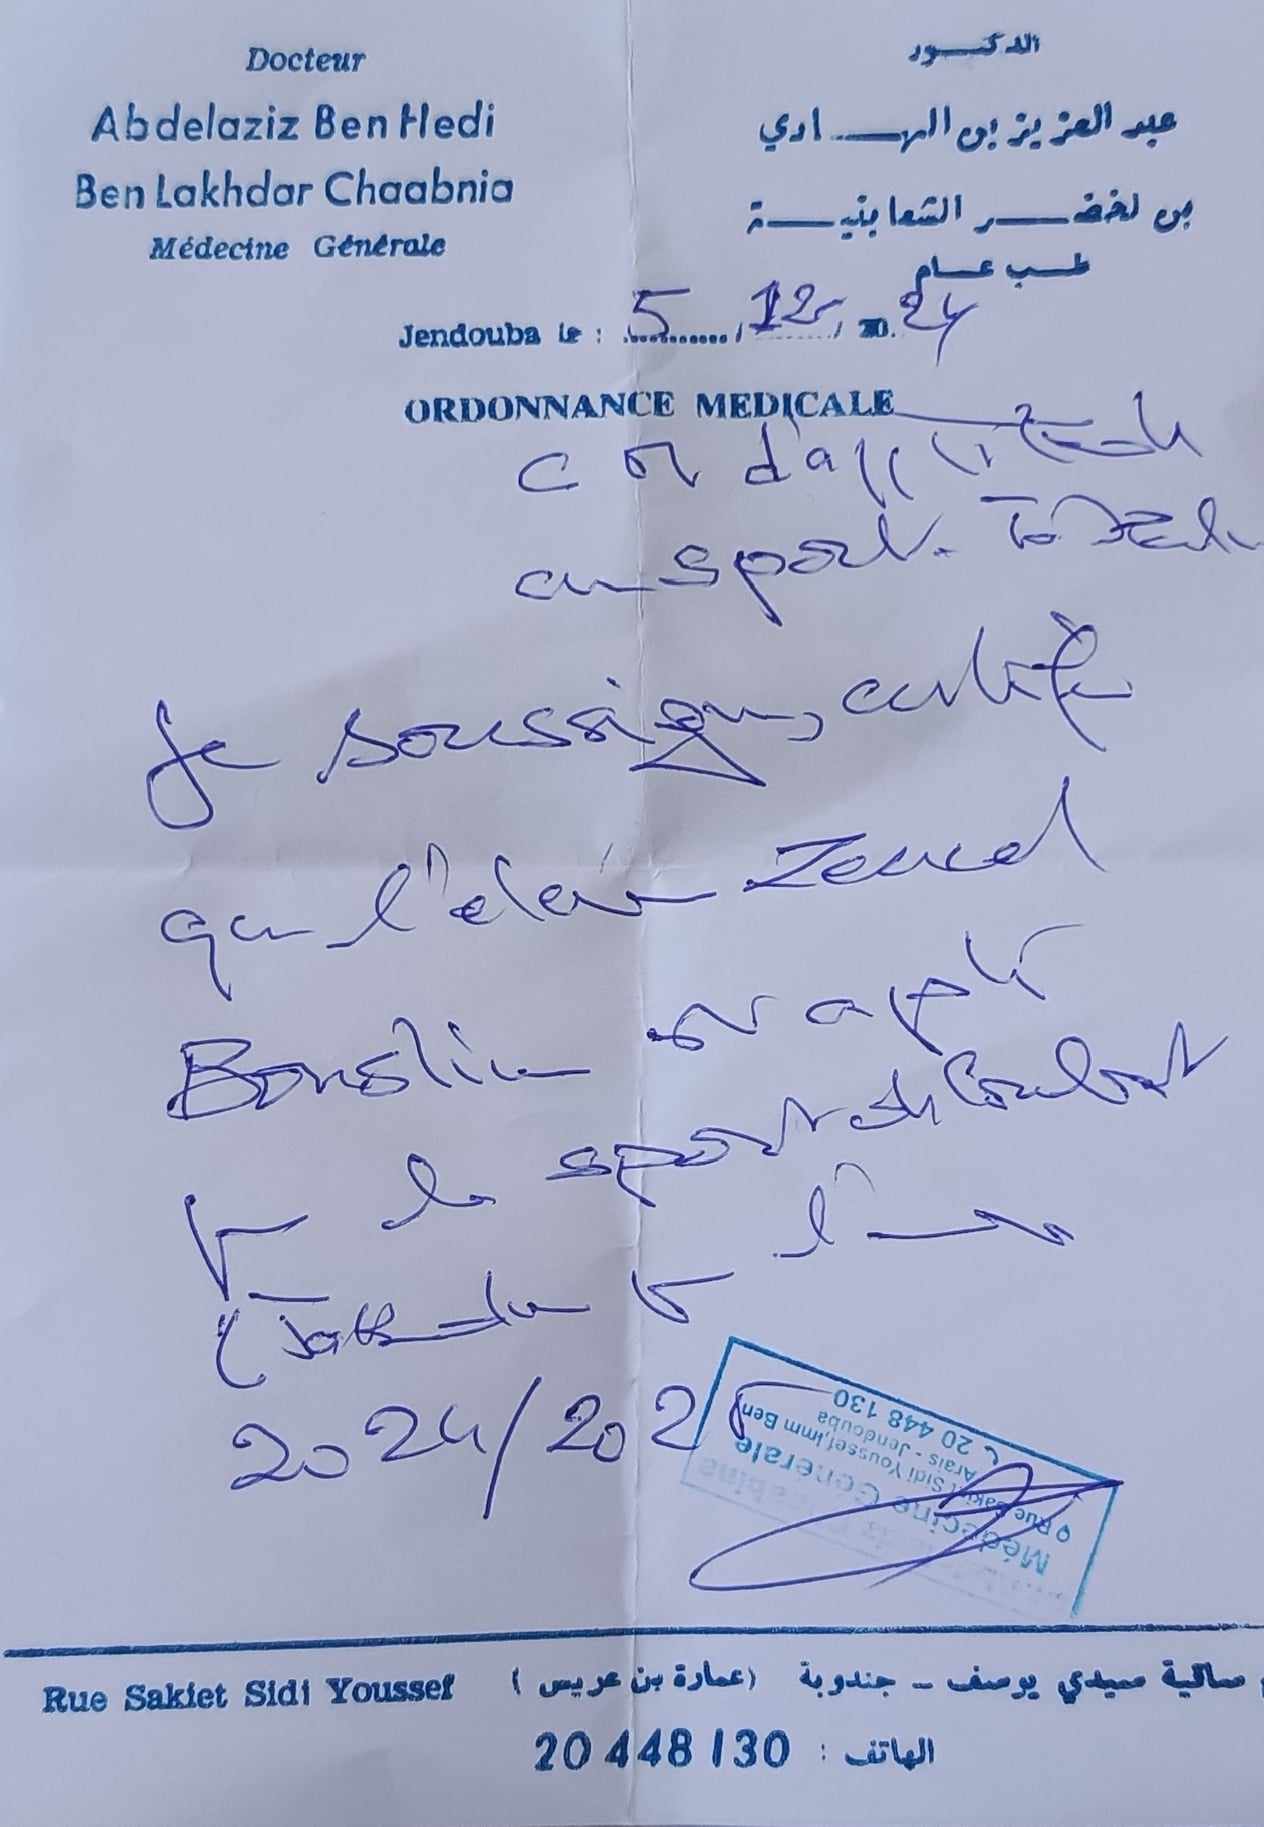 Docteur
Abdelaziz Ben Hedi
Ben Lakhdar Chaabnia
Médecine Générale
الدكتور
عبد العزيز بن الهادي
بن لخضر الشعابنية
طب عام
Jendouba le : 5 / 12 / 20. 24
ORDONNANCE MEDICALE
d'aptitude
au sport.
Je soussigné, certifie
que l'élève
est apte
pr le sport de Combat
( pr l'année
2024/2025
Médecine Générale
Rue Sakiet Sidi Youssef, Imm Ben
Arais - Jendouba
20 448 130
Rue Sakiet Sidi Youssef
ساقية سيدي يوسف - جندوبة (عمارة بن عريس)
الهاتف : 20 448 130